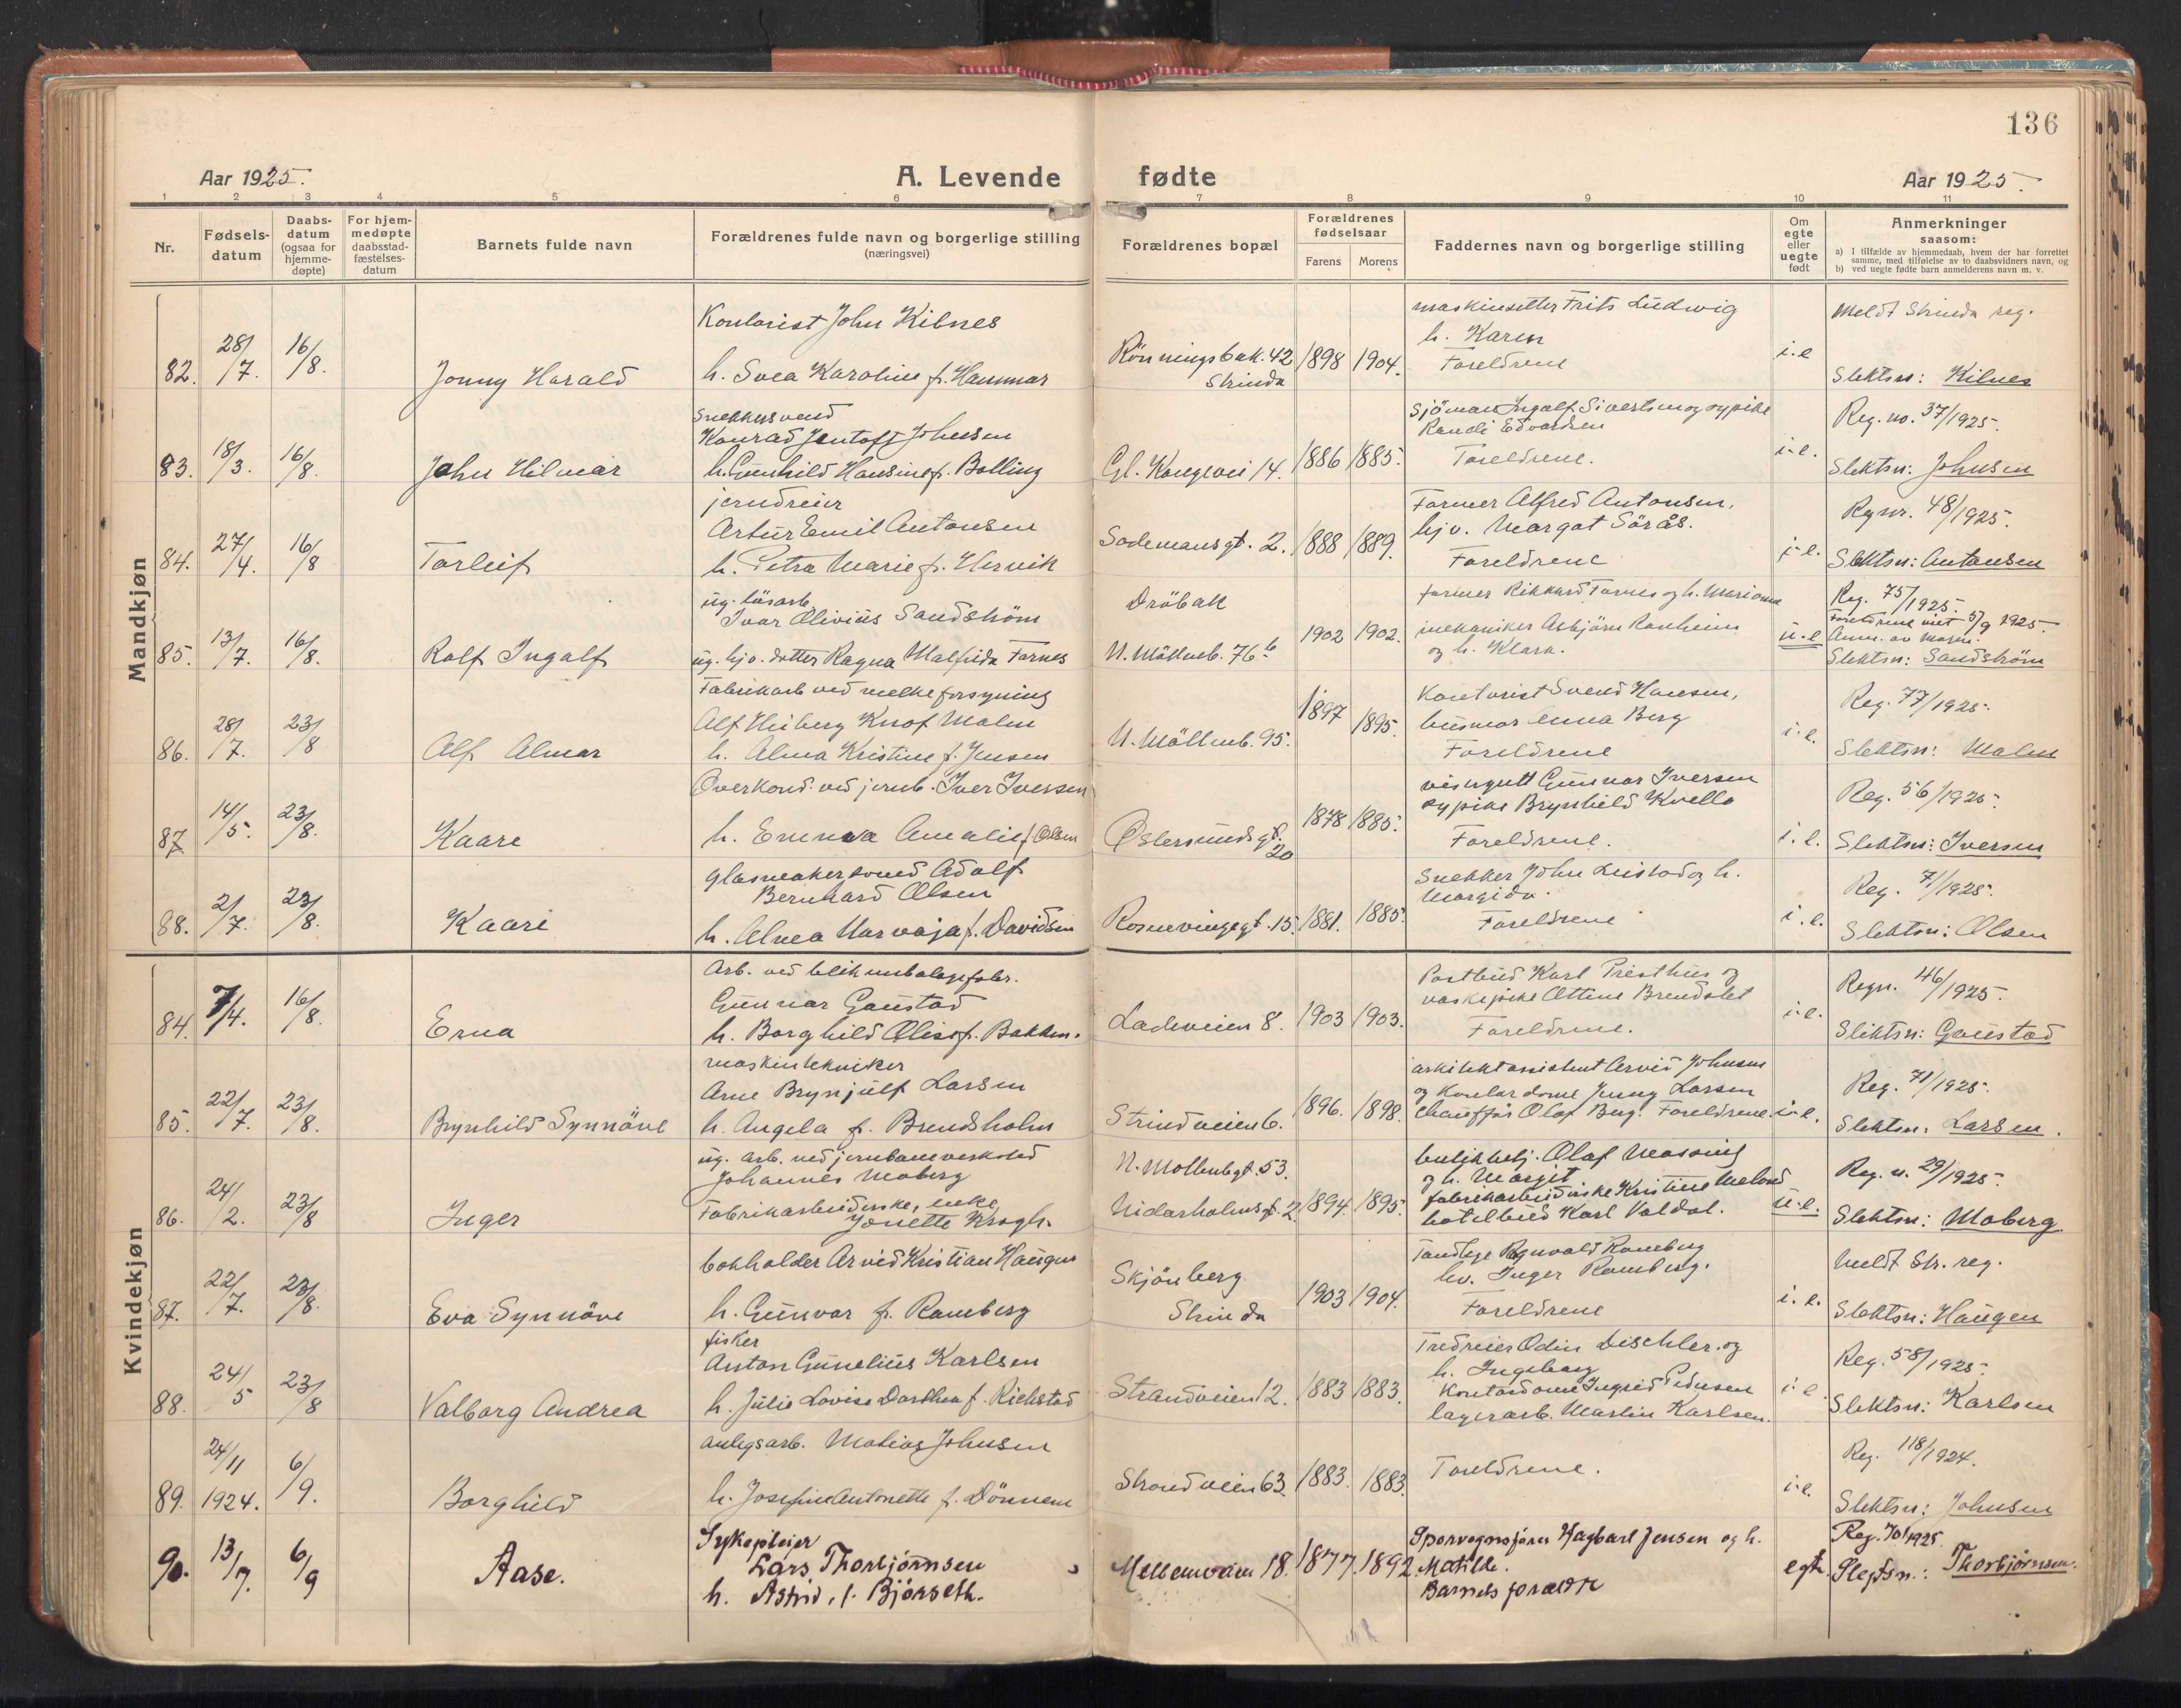 136
Aar 1925.
A. Levende fødte
Aar 1925.
1 2 3 4 5 6 7 8 9 10 11
Nr.
Fødsels-
datum
Daabs-
datum
(ogsaa for
hjemme-
døpte)
For hjem-
medøpte
daabsstad-
fæstelses-
datum
Barnets fulde navn
Forældrenes fulde navn og borgerlige stilling
(næringsvei)
Forældrenes bopæl
Forældrenes
fødselsaar
Farens Morens
Faddernes navn og borgerlige stilling
Om
egte
eller
uegte
født
Anmerkninger
saasom:
a) I tilfælde av hjemmedaab, hvem der har forrettet
samme, med tilføielse av to daabsvidners navn, og
b) ved uegte fødte barn anmelderens navn m. v.
Mandkjøn
82. 28/7. 16/8. Jonny Harald
Kontorist John Kilnes
h. Svea Karoline f. Hammar
Rönningsbak. 42
Strinda
1898 1904.
maskinsetter Frits Ludwig
h. Karen
Foreldrene
i.e
Meldt Strinda reg.
Slektsn: Kilnes
83. 18/3. 16/8. John Hilmar
Snekkersvend
Konrad Jentoft Johnsen
h. Gunhild Hansine f. Bolling
Gl. Kongevei 14. 1886 1885.
Sjömann Ingolf Sivertsen og sypike
Randi Edvardsen
Foreldrene.
i.e.
Reg. no. 37/1925.
Slektsn: Johnsen
84. 27/4. 16/8 Torleif
jerndreier
Artur Emil Antonsen
h. Petra Marie f. Hervik
Sodemansgt. 2. 1888 1889.
Former Alfred Antonsen,
hjv. Margot Sörås.
Foreldrene
i.e.
Regnr. 48/1925.
Slektsn: Antonsen
85. 13/7. 16/8. Rolf Ingolf
ug. lösarb.
Ivar Olivius Sandström
ug. hjv. datter Ragna Malfrida Farnes
Dröbak
N. Möllenb. 76 b
1902 1902.
former Rikkard Farnes og h. Marianne
mekaniker Asbjörn Ranheim
og h. Klara.
u.e
Reg. 75/1925.
Foreldrene viet 5/9 1925.
Anm. av moren.
Slektsn: Sandström
86. 28/7. 23/8 Alf Almar
Fabrikarb. ved melkeforsyning
Alf Heiberg Knof Malm
h. Alma Kristine f. Jensen
N. Möllenb. 95. 1897 1895.
Kontorist Svend Hansen,
husmor Anna Berg
Foreldrene
i.e.
Reg. 77/1925.
Slektsn: Malm
87 14/5. 23/8. Kaare
Overkond. ved jernb. Iver Iversen
h. Emma Amalie f. Olsen
Östersundsgt.
20
1878 1885.
visergutt Gunnar Iversen
sypike Brynhild Kvello
Foreldrene.
i.e.
Reg. 56/1925.
Slektsn: Iversen
88. 2/7. 23/8. Kaare
glasmakersvend Adolf
Bernhard Olsen
h. Alvea f. Davidsen
Rosenvingegt. 15. 1881. 1885.
Snekker John Leistad og h.
Margida.
Foreldrene
i.e.
Reg. 71/1925.
Slektsn: Olsen
Kvindekjøn
84. 7/4. 16/8. Erna
Arb. ved blikemballagefabr.
Gunnar Gaustad
h. Borghild Olise f. Bakken.
Ladeveien 8. 1903 1903.
Postbud Karl Presthus og
vaskepike Ottine Brendslet
Foreldrene.
i.e.
Regn. 46/1925.
Slektsn: Gaustad
85. 22/7. 23/8. Brynhild Synnöve
maskintekniker
Arne Brynjulf Larsen
h. Angela f. Brendsholm
Strindveien 6. 1896. 1898.
arkitektassistent Arvid Johnsen
og kontordame Jenny Larsen
Chaufför Olaf Berg. Foreldrene.
i.e.
Reg. 71/1925.
Slektsn. Larsen.
86. 24/2. 23/8 Inger
ug. arb. ved jernbaneverksted
Johannes Moberg
Fabrikarbeiderske, enke,
Jonette Krogh.
N. Mollenbgt. 53.
Nidarholmsgt. 2. 1894. 1895.
butikkbetj. Olaf Mossing
og h. Margit
fabrikarbeiderske Kristine Meland
hotelbud Karl Valdal.
u.e.
Reg. n. 29/1925.
Slektsn: Moberg
87. 22/7. 23/8. Eva Synnöve
bokholder Arvid Kristian Haugen
h. Gunvor f. Ramberg
Skjönberg
Strinda
1903 1904.
Tandlege Ragnvald Ramberg
hv. Inger Ramberg.
Foreldrene
i.e.
Meldt Str. reg.
Slektsn: Haugen
88. 24/5 23/8 Valborg Andrea
fisker
Anton Cunelius Karlsen
h. Julie Lovise Dorthea f. Richstad
Strandveien 12. 1883 1883.
Tredreier Odin Dischler og
h. Ingeborg
Kontordame Ingrid Pedersen
lagerarb. Martin Karlsen.
i.e.
Reg. 58/1925.
Slektsn: Karlsen
89. 24/11 1924. 6/9. Borghild
anlegsarb. Matias Johnsen
h. Josefine Antonette f. Dönnem
Strandveien 63. 1883. 1883.
Foreldrene.
i.e.
Reg. 118/1924.
Slektsn: Johnsen
90. 13/7. 6/9 Aase.
Sykepleier
Lars Thorbjörnsen
h. Astrid, f. Bjørseth.
Mellemveien 18. 1877. 1892.
Sporvognsfører Hagbart Jensen og h.
Matilde.
Barnets forældre
egte.
Reg. 70/1925.
Slegtsn.: Thorbjørnsen.